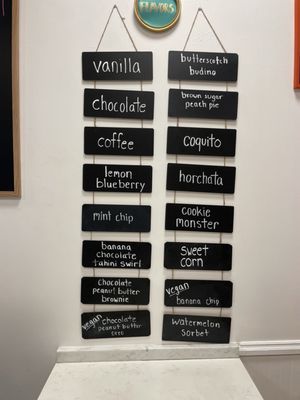 FLAVORS
vanilla
chocolate
coffee
lemon
blueberry
mint chip
banana
chocolate
tahini swirl
chocolate
peanut butter
brownie
vegan chocolate
peanut butter
oreo
butterscotch
budino
brown sugar
peach pie
coquito
horchata
cookie
monster
sweet
corn
vegan
banana chip
watermelon
sorbet